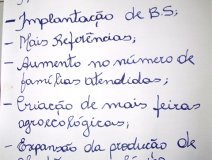 - Implantação de BS;
- Mais Referências;
- Aumento no número de
famílias atendidas;
- Criação de mais feiras
agroecológicas;
- Expansão da produção de